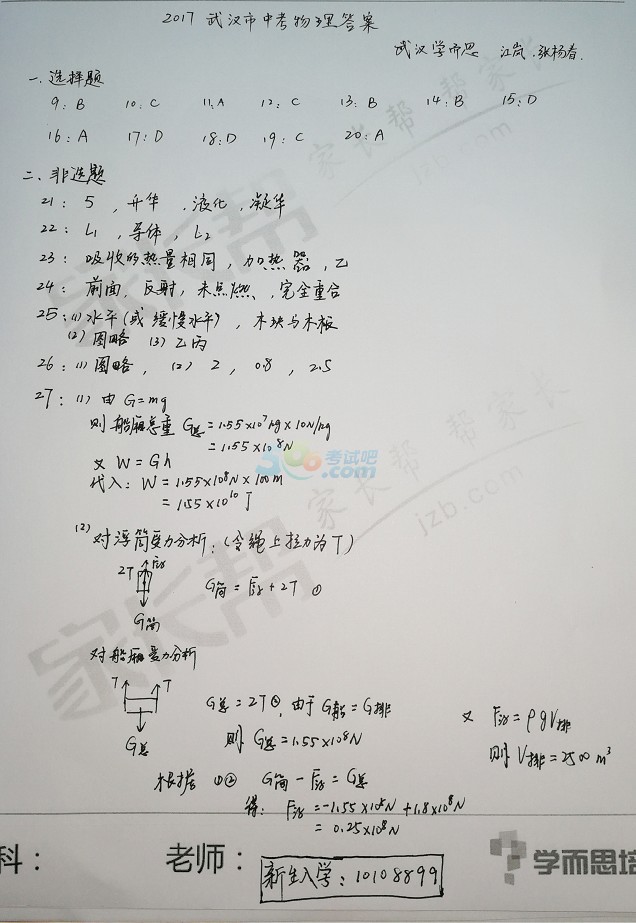 2017 武汉市中考物理答案
武汉学而思 江岚.张杨春.
一.选择题
9:B 10:C 11:A 12:C 13:B 14:B 15:D
16:A 17:D 18:D 19:C 20:A
二.非选题
21: 5 , 升华 , 液化 , 凝华
22: L₁ , 导体 , L₂
23: 吸收的热量相同, 加热器, 乙
24: 前面, 反射, 未点燃, 完全重合
25: (1) 水平(或缓慢水平), 木块与木板
(2) 图略 (3) 乙丙
26: (1) 图略, (2) 2 , 0.8 , 2.5
27: (1) 由 G=mg
则船厢总重 G总 = 1.55×10⁷kg×10N/kg
= 1.55×10⁸N
又 W=Gh
代入: W = 1.55×10⁸N×100m
= 1.55×10¹⁰J
(2) 对浮筒受力分析: (令绳上拉力为T)
2T F浮
G筒 = F浮+2T ①
G筒
对船厢受力分析
T T
G总 = 2T②, 由于G船=G排
则 G总=1.55×10⁸N
G总
又 F浮=ρgV排
则 V排=2500m³
根据 ①② G筒-F浮=G总
得: F浮 = -1.55×10⁸N+1.8×10⁸N
= 0.25×10⁸N
科: 老师: 学而思培
新生入学: 10108899
家长帮 帮家长
jzb.com
家长帮 帮家长
jzb.com
家长帮
家长帮
考试吧
.com